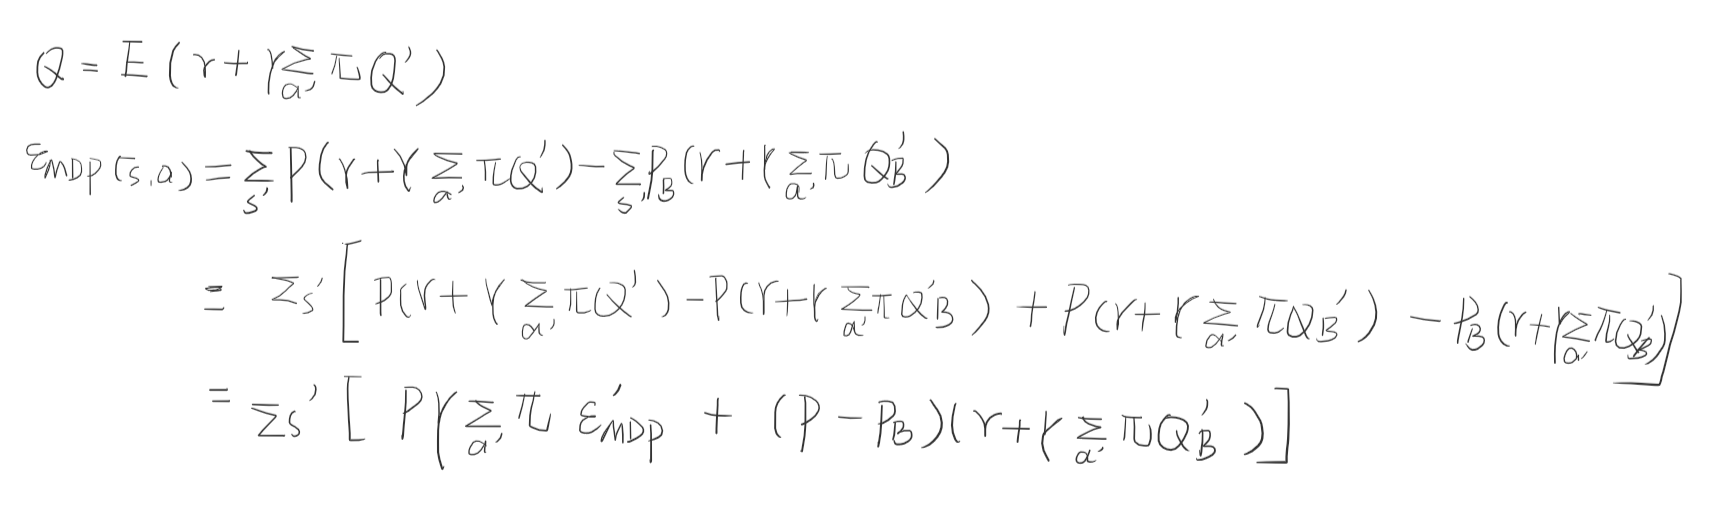 Q = E (r + γ Σ_a' π Q')
ε_MDP (s,a) = Σ_s' P(r + γ Σ_a' π Q') - Σ_s' P_B (r + γ Σ_a' π Q'_B)
= Σ_s' [ P(r + γ Σ_a' π Q') - P(r + γ Σ_a' π Q'_B) + P(r + γ Σ_a' π Q'_B) - P_B (r + γ Σ_a' π Q'_B) ]
= Σ_s' [ P γ Σ_a' π ε'_MDP + (P - P_B)(r + γ Σ_a' π Q'_B) ]